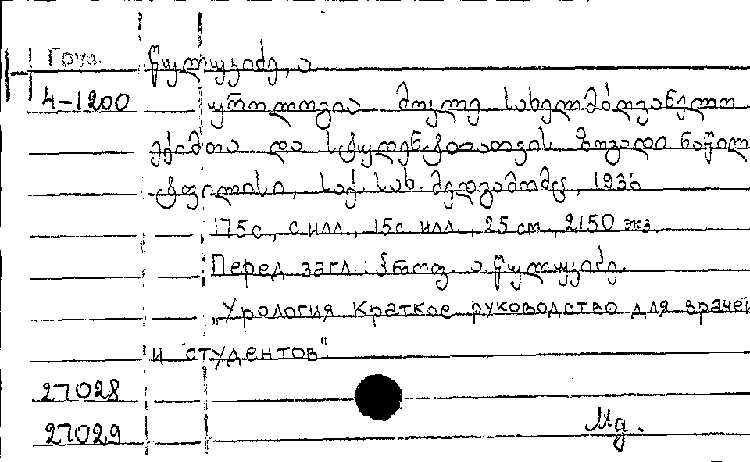 Груз. წულუკიძე, ა
4-1200 უროლოგია მოკლე სახელმძღვანელო
ექიმთა და სტუდენტთათვის ზოგადი ნაწილი
ტფილისი, საქ. სახ. მედგამომც, 1936
175 с, с илл, 15 с илл, 25 см, 2150 экз.
Перед загл: პროფ. ა წულუკიძე.
„Урология Краткое руководство для врачей
и студентов".
27028
27029 Мд.